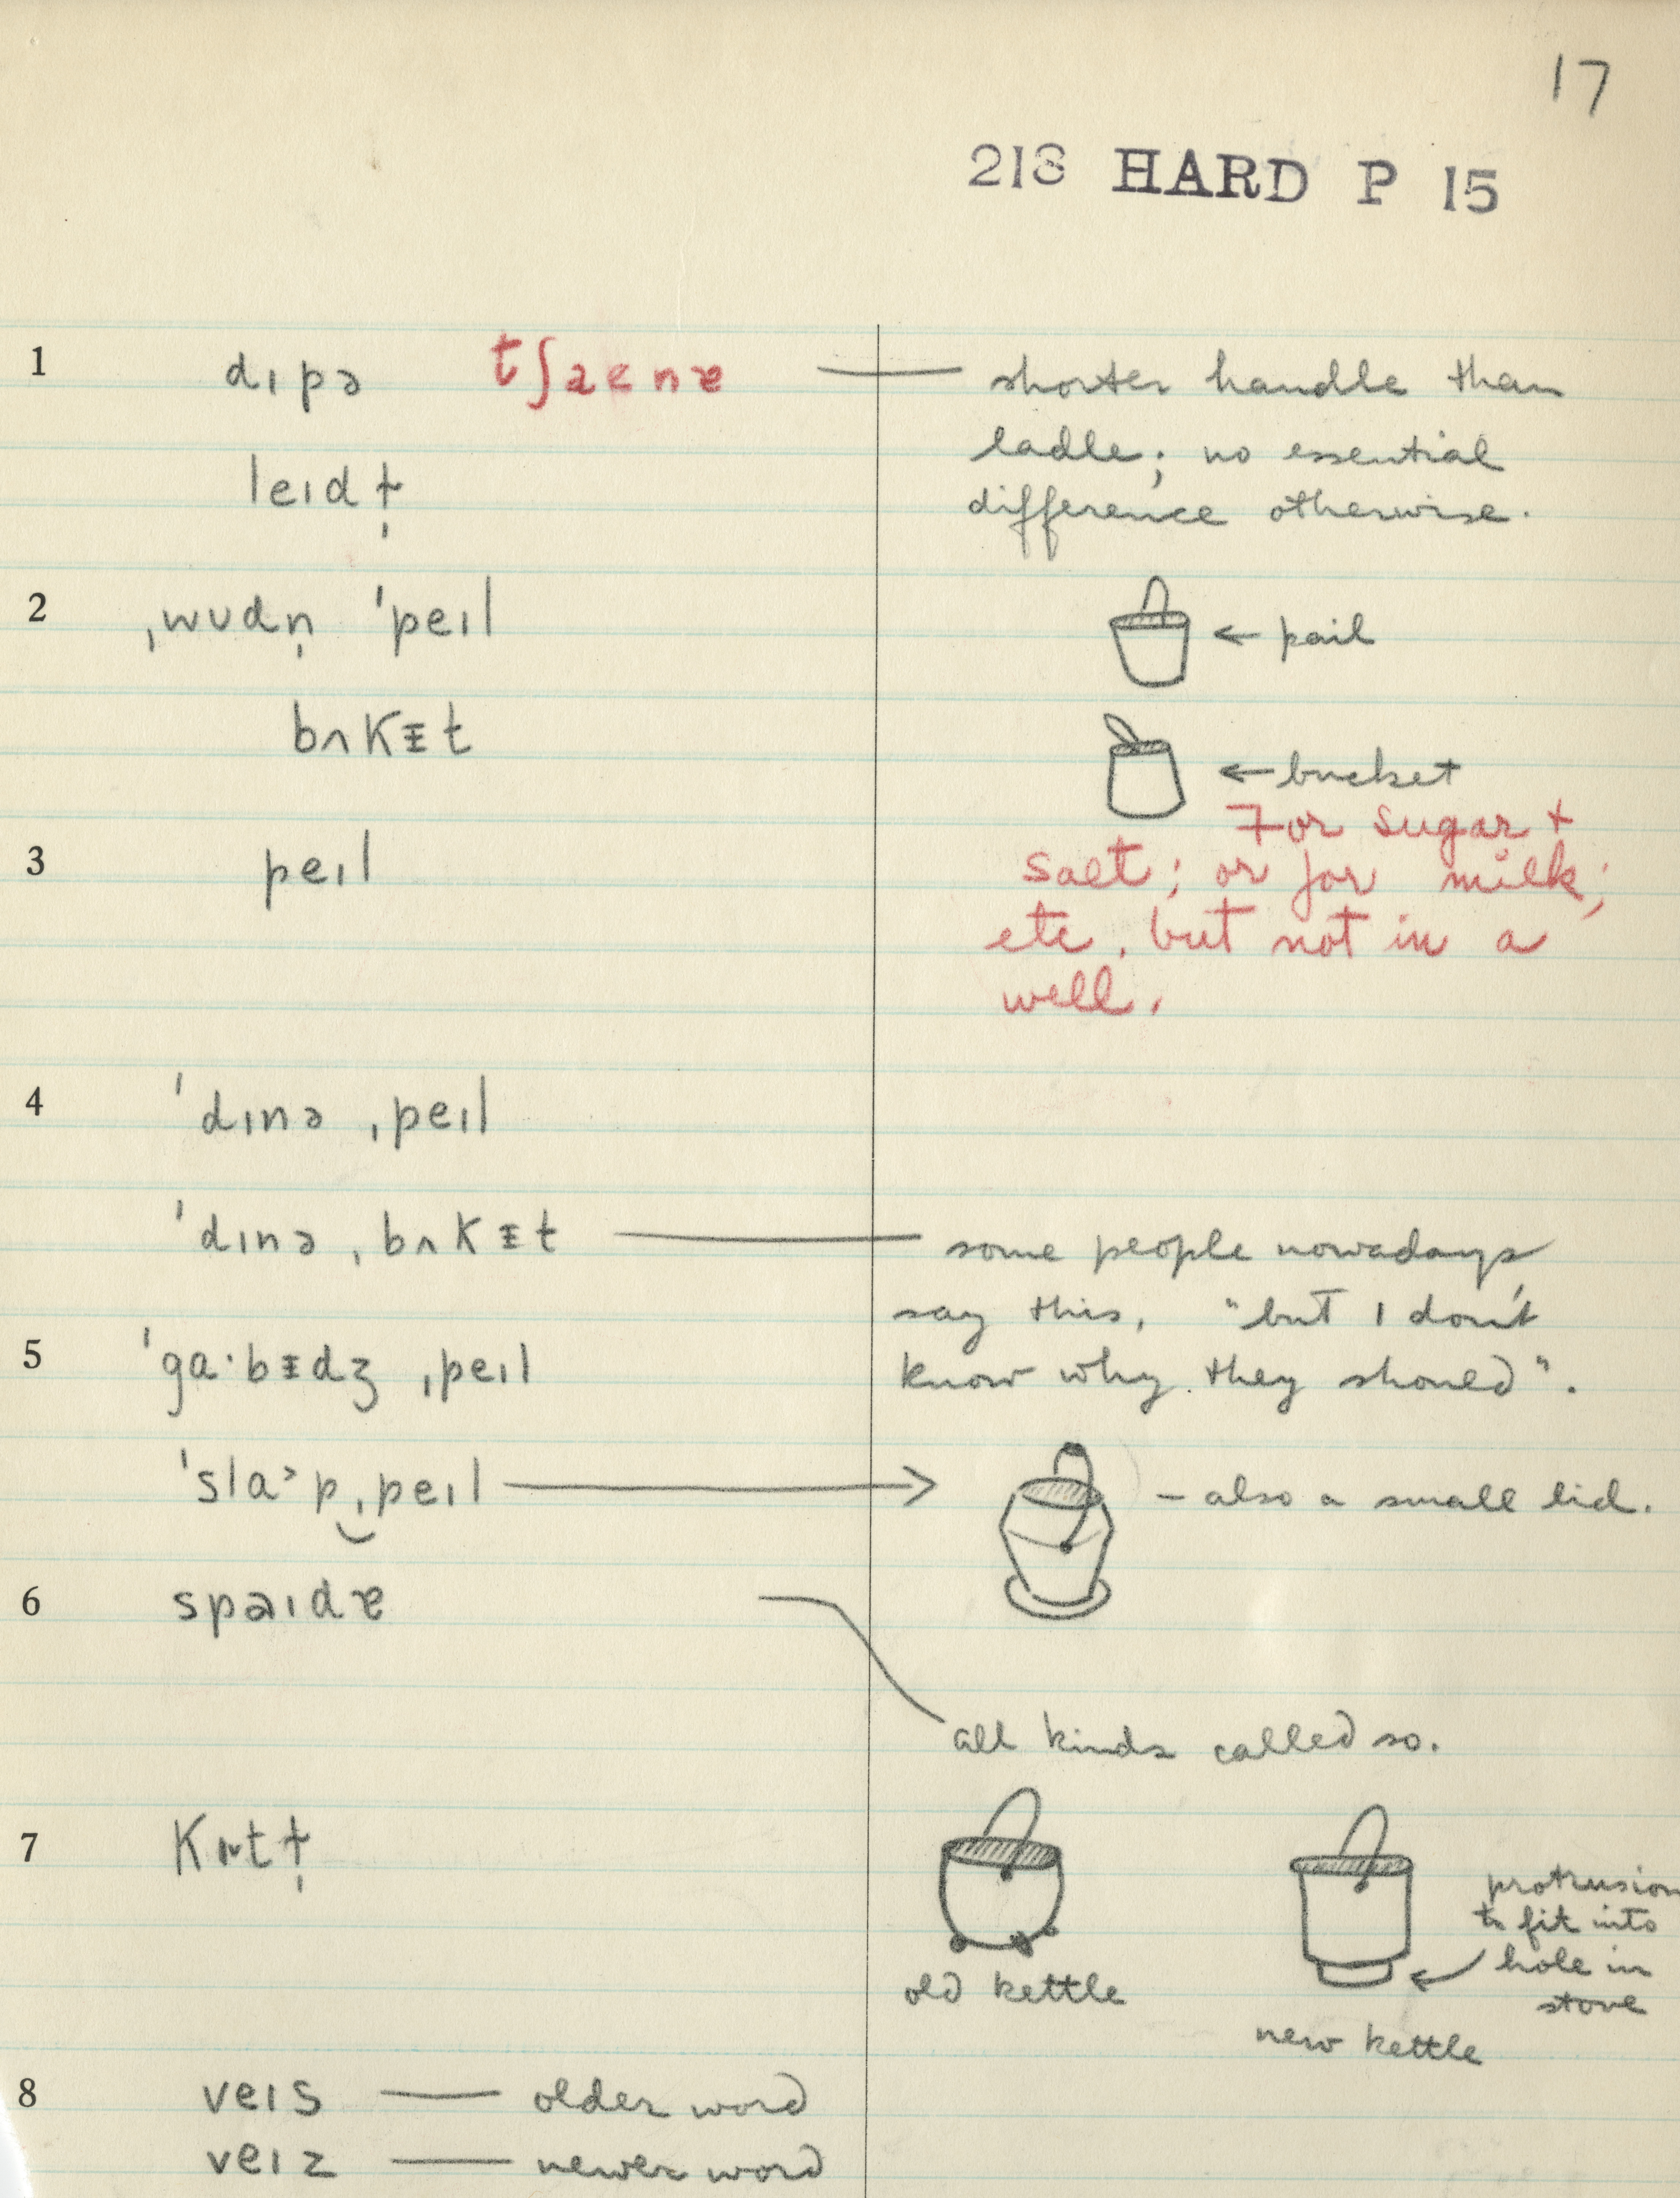 17
218 HARD P 15
1 dɪpə tʃaenɐ — shorter handle than
ladle; no essential
leɪdɫ̩
difference otherwise.
2 ˌwʊdn̩ ˈpeɪl
← pail
bʌkᵻt
← bucket
For sugar +
3 peɪl
salt; or for milk;
etc. but not in a
well.
4 ˈdɪnə ˌpeɪl
ˈdɪnə ˌbʌkᵻt — some people nowadays
say this, "but I don't
5 ˈgɑ·bᵻdʒ ˌpeɪl
know why they should".
ˈslɑ˃p‿ˌpeɪl → – also a small lid.
6 spaɪdɐ
all kinds called so.
7 kɛtɫ̩
protrusion
to fit into
hole in
stove
old kettle
new kettle
8 veɪs — older word
veɪz — newer word